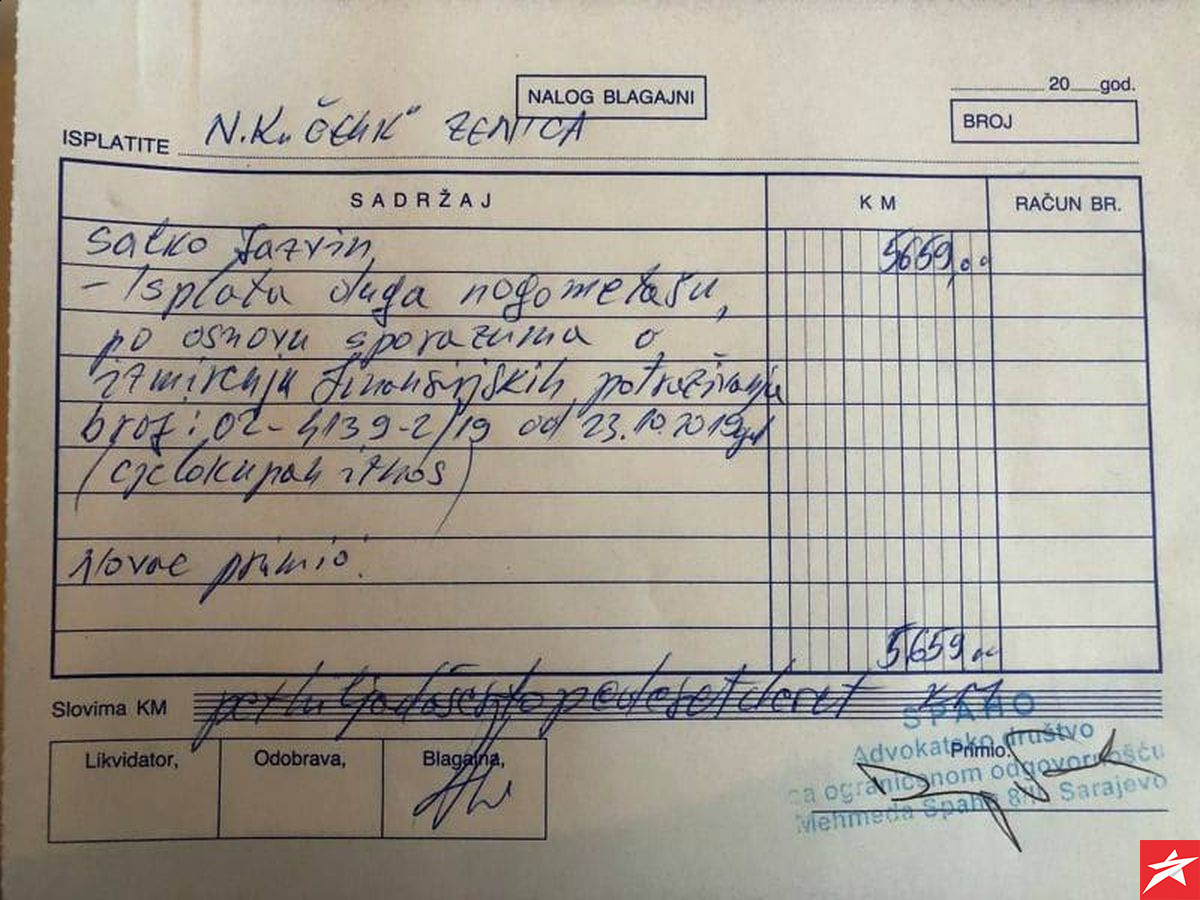 NALOG BLAGAJNI
20 god.
BROJ
ISPLATITE N.K. "ČELIK" ZENICA
SADRŽAJ KM RAČUN BR.
Salko Jazvin 5659,00
- Isplata duga nogometašu,
po osnovu sporazuma o
izmirenju finansijskih potraživanja
broj: 02-4139-2/19 od 23.10.2019 god
(cjelokupan iznos)
Novac primio:
5659,00
Slovima KM pethiljadašestopedesetdevet KM
SPAHO
Likvidator, Odobrava, Blagajna, Primio,
Advokatsko društvo
sa ograničenom odgovornošću
Mehmeda Spahe Sarajevo